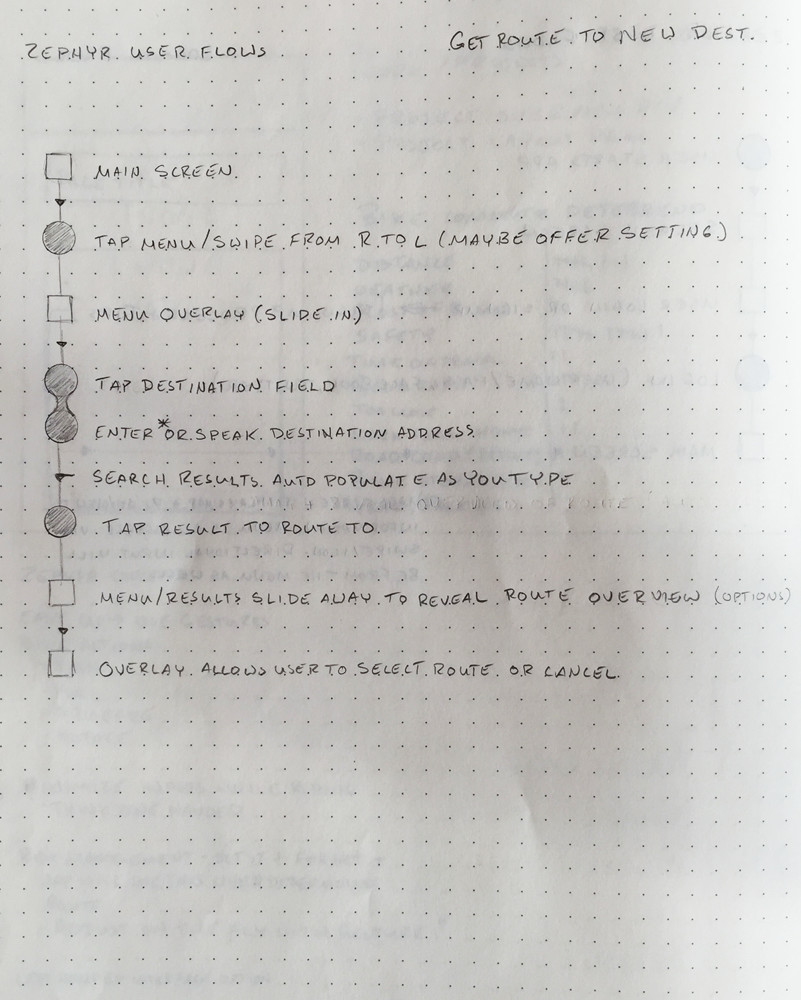 ZEPHYR USER FLOWS
GET ROUTE TO NEW DEST.
MAIN SCREEN
TAP MENU/SWIPE FROM R TO L (MAYBE OFFER SETTING)
MENU OVERLAY (SLIDE IN)
TAP DESTINATION FIELD
ENTER *OR SPEAK DESTINATION ADDRESS
SEARCH RESULTS AUTO POPULATE AS YOU TYPE
TAP RESULT TO ROUTE TO
MENU/RESULTS SLIDE AWAY TO REVEAL ROUTE OVERVIEW (OPTIONS)
OVERLAY ALLOWS USER TO SELECT ROUTE OR CANCEL